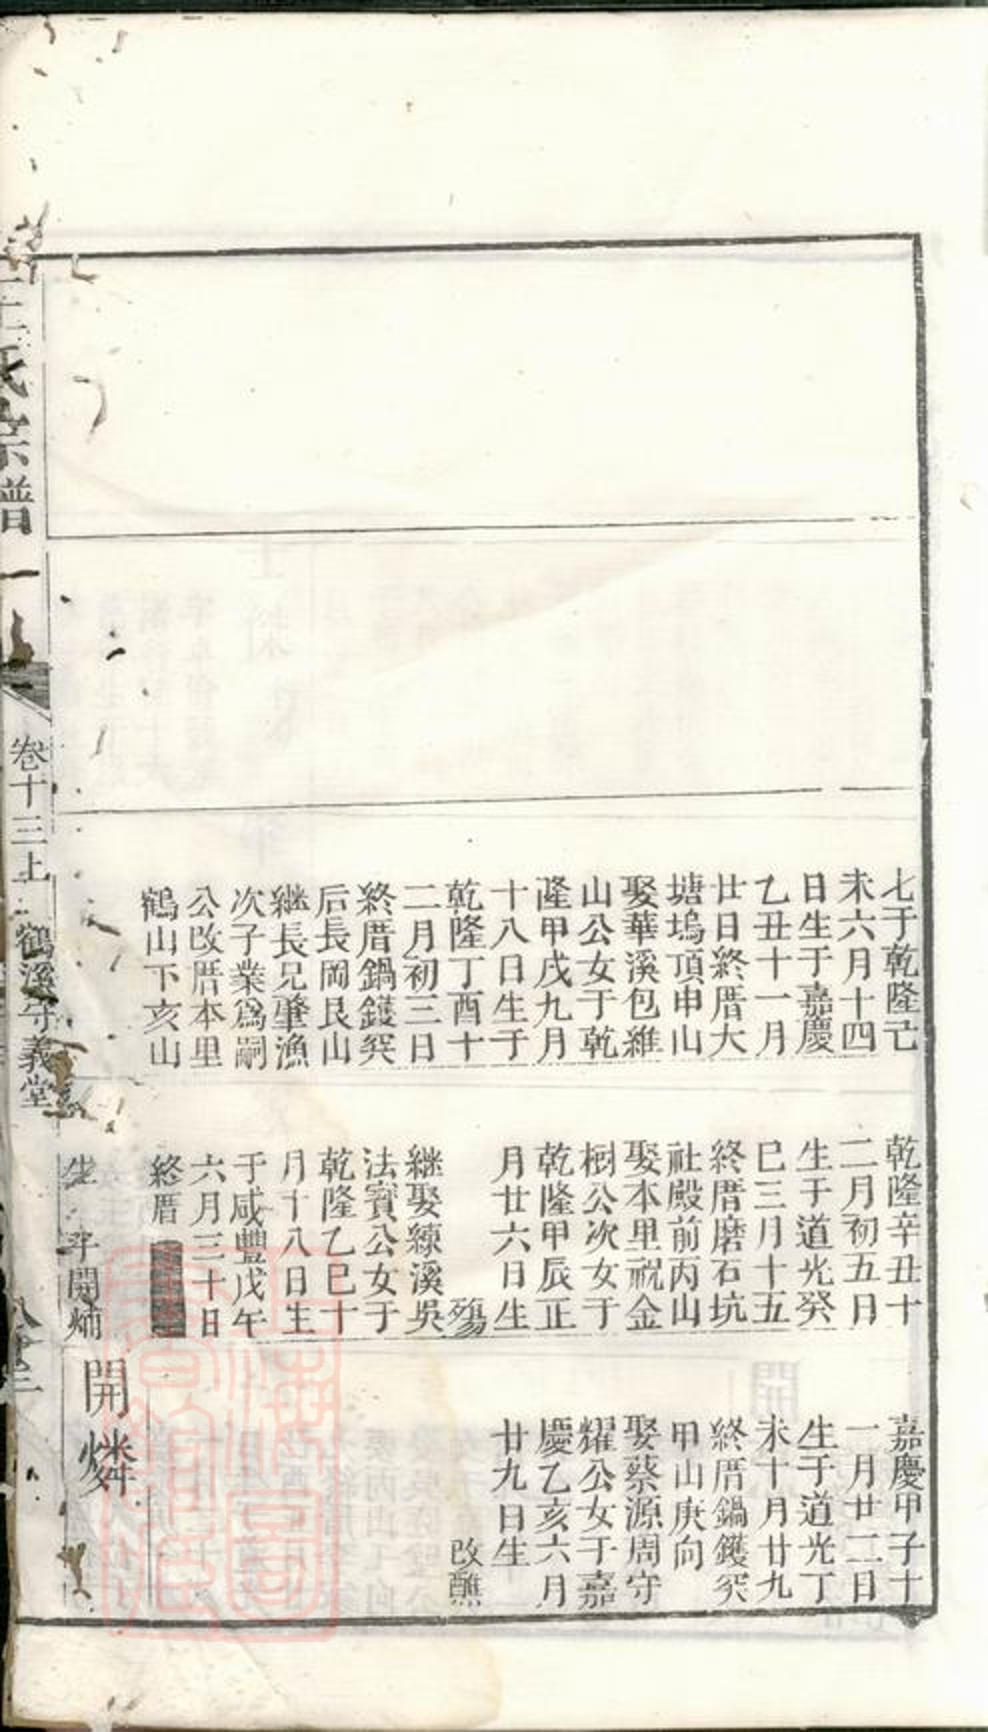 七于乾隆己
未六月十四
日生于嘉慶
乙丑十一月
廿日終厝大
塘塢頂申山
娶華溪包維
山公女于乾
隆甲戌九月
十八日生于
乾隆丁酉十
二月初三日
終厝鍋鑊突
后長岡艮山
継長兄肇漁
次子業為嗣
公改厝本里
鶴山下亥山
乾隆辛丑十
二月初五日
生于道光癸
巳三月十五
終厝磨石坑
社殿前丙山
娶本里祝金
樹公次女于
乾隆甲辰正
月廿六日生
殤
継娶練溪吳
法寳公女于
乾隆乙巳十
月十八日生
于咸豐戊午
六月三十日
終厝
生 子開炳
嘉慶甲子十
一月廿二日
生于道光丁
未十月廿九
終厝鍋鑊突
甲山庚向
娶蔡源周守
耀公女于嘉
慶乙亥六月
廿九日生
改醮
開燐
王氏宗譜
卷十三上 鶴溪守義堂